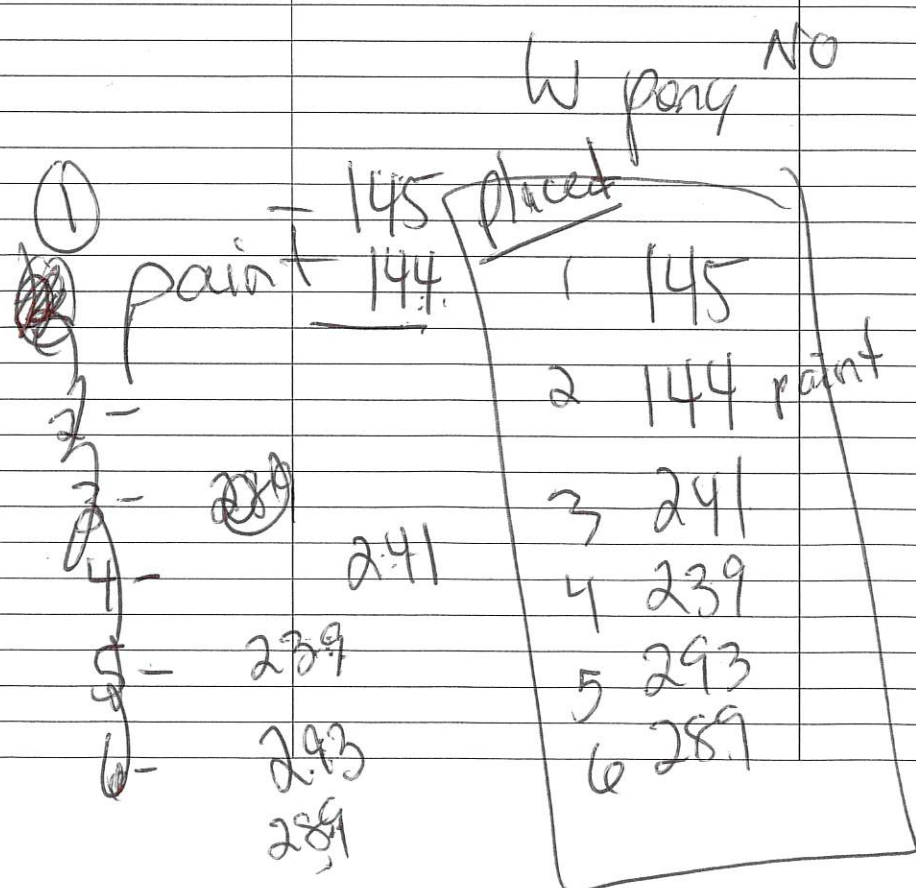 NO
W pony
① - 145
paint 144
2 -
3 - 289
4 - 241
5 - 239
6 - 293
289
placed
1 145
2 144 paint
3 241
4 239
5 293
6 289